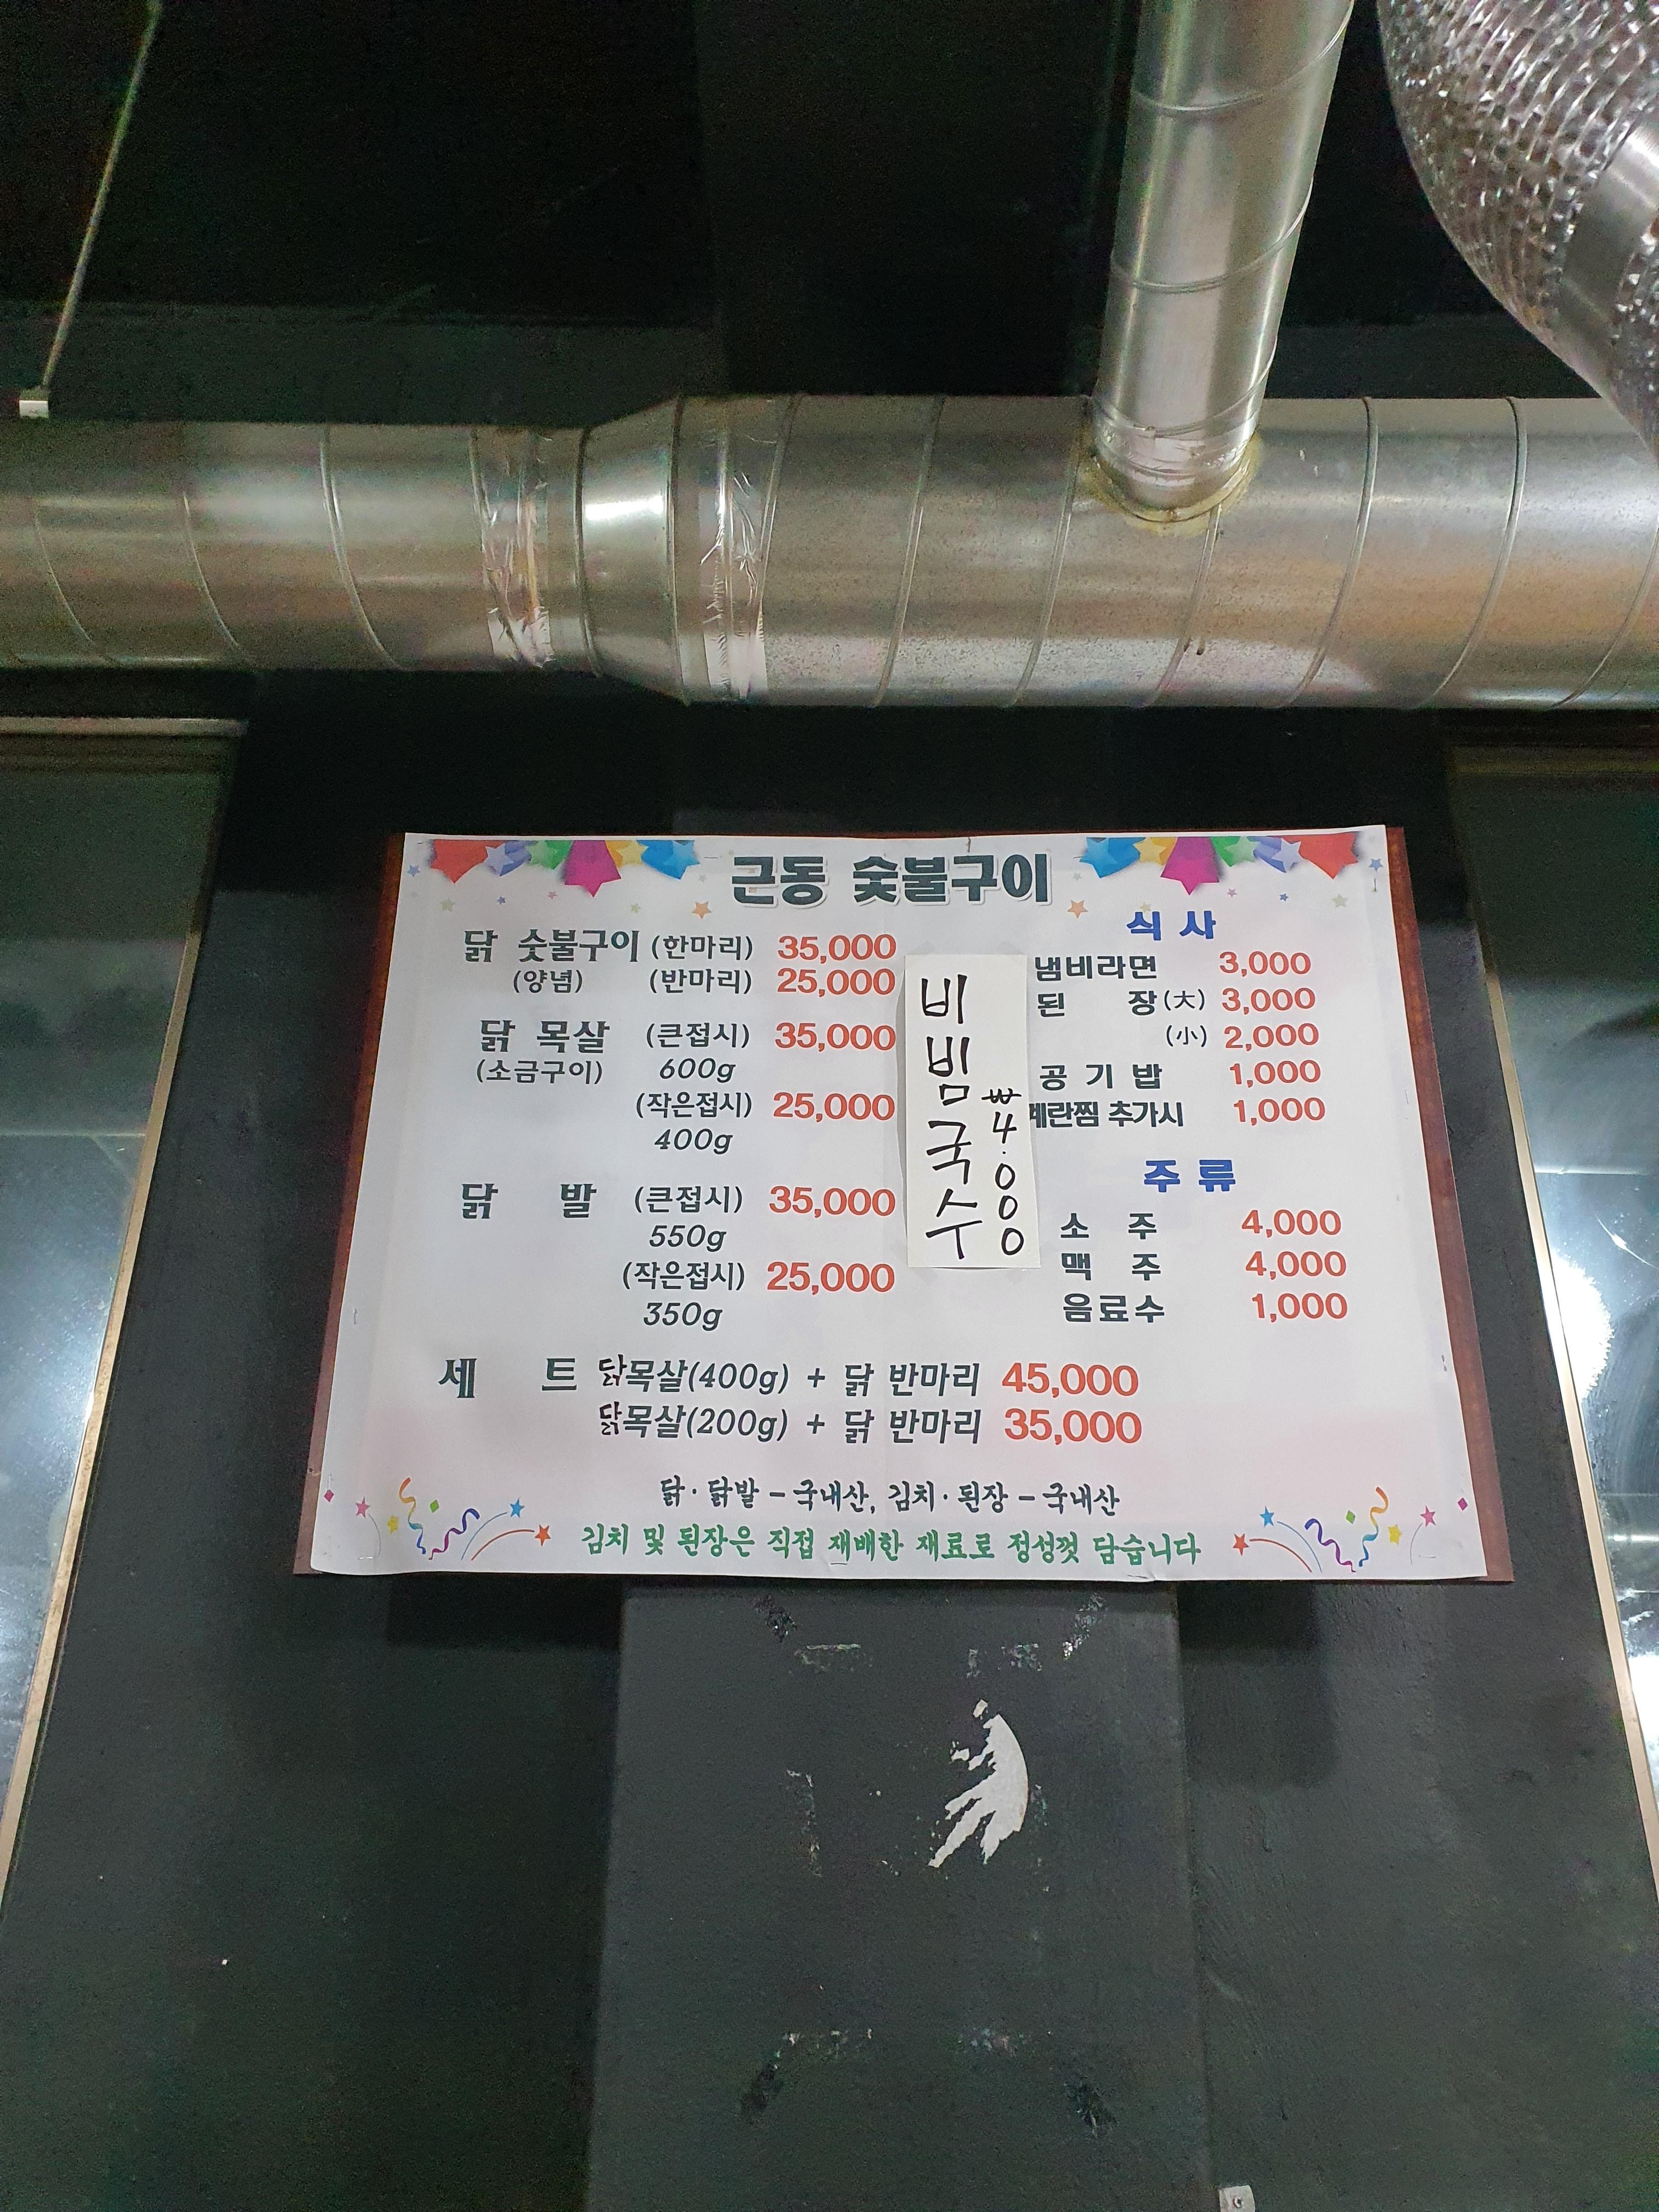 근동 숯불구이
닭 숯불구이 (한마리) 35,000
(양념) (반마리) 25,000
닭 목살 (큰접시) 35,000
(소금구이) 600g
(작은접시) 25,000
400g
닭 발 (큰접시) 35,000
550g
(작은접시) 25,000
350g
비빔국수
₩4.000
식 사
냄비라면 3,000
된 장(大) 3,000
(小) 2,000
공 기 밥 1,000
계란찜 추가시 1,000
주 류
소 주 4,000
맥 주 4,000
음료수 1,000
세 트 닭목살(400g) + 닭 반마리 45,000
닭목살(200g) + 닭 반마리 35,000
닭·닭발 - 국내산, 김치·된장 - 국내산
김치 및 된장은 직접 재배한 재료로 정성껏 담습니다